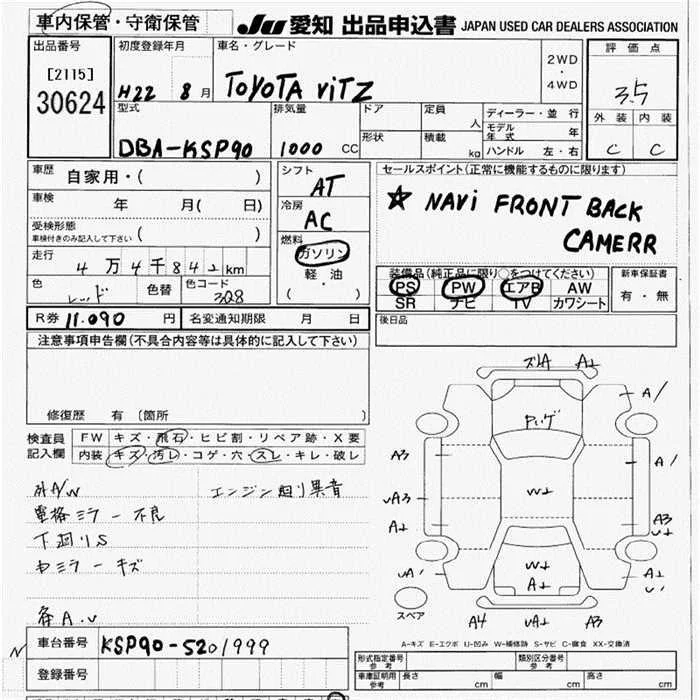 車内保管・守衛保管
JU 愛知 出品申込書 JAPAN USED CAR DEALERS ASSOCIATION
出品番号 初度登録年月 車名・グレード 評価点
[2115]
30624
H22 8月 TOYOTA ViTZ 2WD・4WD 3.5
型式 排気量 ドア 定員 人 ディーラー・並行 外装 内装
形状 積載 kg モデル年式 年
DBA-KSP90 1000 CC ハンドル 左・右 C C
車歴 自家用・( ) シフト AT セールスポイント(正常に機能するものに限ります)
車検 年 月( 日) 冷房 AC ☆ NAVi FRONT BACK
受検形態 ( )
車検付きのみ記入して下さい
燃料 ガソリン CAMERR
走行 4万4千842km 軽・油 ( )
装備品(純正品に限り○をつけてください) 新車保証書
色 レッド 色替 色コード 3R8
PS PW エアB AW 有・無
SR ナビ TV カワシート
R券 11.090 円 名変通知期限 月 日 後日品
注意事項申告欄(不具合内容等は具体的に記入して下さい)
修復歴 有 (箇所 )
検査員 FW キズ・飛石・ヒビ割・リペア跡・X要
記入欄 内装 キズ・汚レ・コゲ・穴・スレ・キレ・破レ
A/W エンジン廻り異音
電格ミラー不良
下廻りS
ミラーキズ
各A.U
A
A/
A3 A/
W
UA3 A3
A
W
UA' A
スペア A4 UA A3
A-キズ E-エクボ U-凹み W-補修跡 S-サビ C-腐食 XX-交換済
車台番号 KSP90-5201999
登録番号
形式指定番号 参考 類別区分番号 参考
車庫証明用 参考 長さ cm 幅 cm 高さ cm